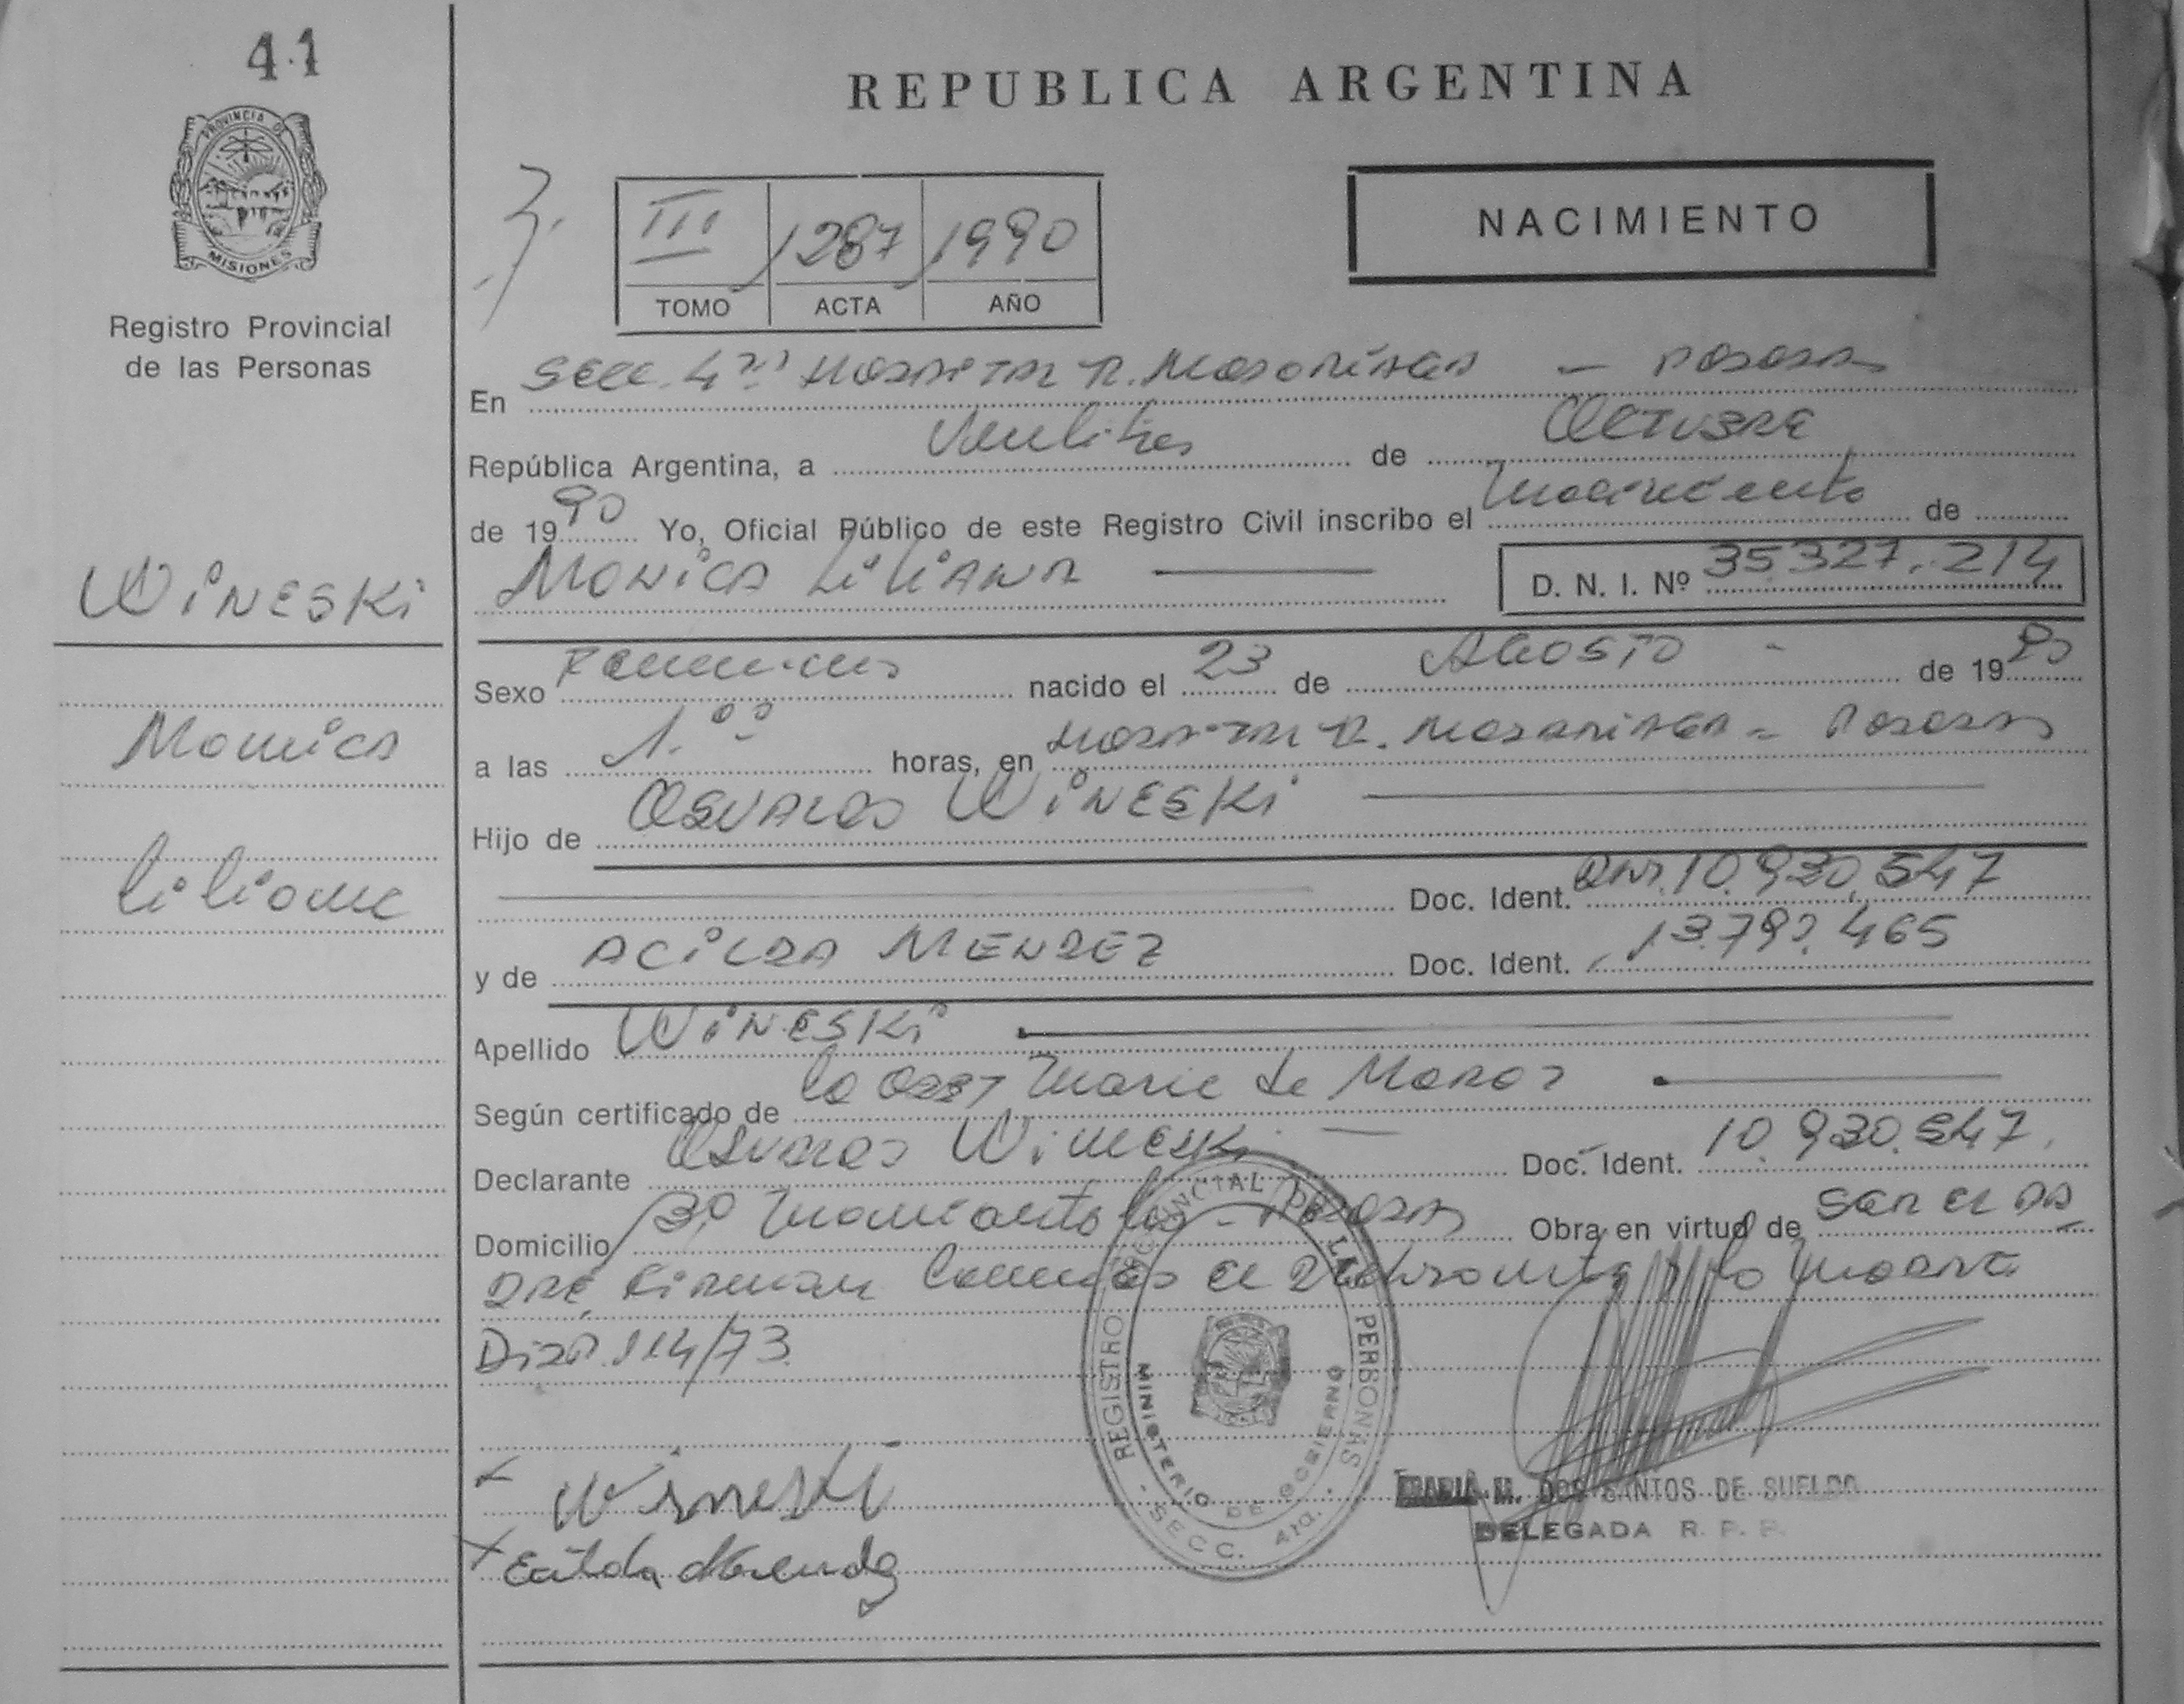 41
REPUBLICA ARGENTINA
PROVINCIA DE
MISIONES
Registro Provincial
de las Personas
III 1287 1990
TOMO ACTA AÑO
NACIMIENTO
En Secc. 4ta Hospital R. Madariaga — Posadas
República Argentina, a Veintitres de Octubre
de 1990 Yo, Oficial Público de este Registro Civil inscribo el Nacimiento de
Monica Liliana D. N. I. Nº 35.327.214
Wineski
Monica
Liliana
Sexo Femenino nacido el 23 de Agosto - de 1990
a las 1.00 horas, en Hospital R. Madariaga - Posadas
Hijo de Osvaldo Wineski
Doc. Ident. DNI. 10.930.547
y de Acilda Mendez Doc. Ident. 13.792.465
Apellido Wineski
Según certificado de la Obst Maria de
Declarante Osvaldo Wineski — Doc. Ident. 10.930.547.
Domicilio Posadas Obra en virtud de ser el pa
dre, Firman el Declarante y la Madre
Disp. 114/73.
REGISTRO PROVINCIAL DE LAS PERSONAS
MINISTERIO DE GOBIERNO
SECC. 4ta.
x Wineski
x Mendez
MARIA M. DOS SANTOS DE SUELDO
DELEGADA R. P. P.